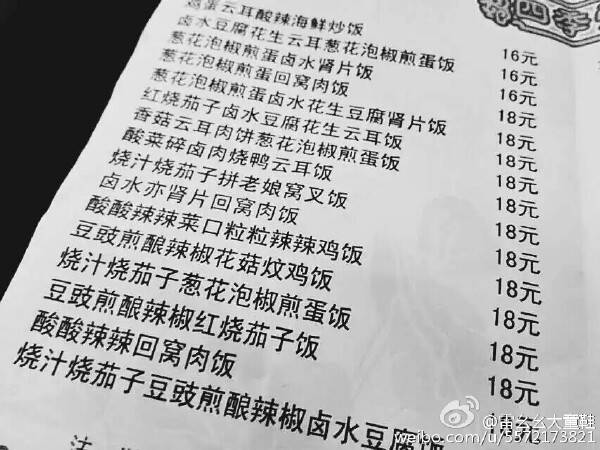 蛋云耳酸辣海鲜炒饭
卤水豆腐花生云耳葱花泡椒煎蛋饭 16元
葱花泡椒煎蛋卤水肾片饭 16元
葱花泡椒煎蛋回窝肉饭 16元
葱花泡椒煎蛋卤水花生豆腐肾片饭 18元
红烧茄子卤水豆腐花生云耳饭 18元
香菇云耳肉饼葱花泡椒煎蛋饭 18元
酸菜碎卤肉烧鸭云耳饭 18元
烧汁烧茄子拼老娘窝叉饭 18元
卤水亦肾片回窝肉饭 18元
酸酸辣辣菜口粒粒辣辣鸡饭 18元
豆豉煎酿辣椒花菇炆鸡饭 18元
烧汁烧茄子葱花泡椒煎蛋饭 18元
豆豉煎酿辣椒红烧茄子饭 18元
酸酸辣辣回窝肉饭 18元
烧汁烧茄子豆豉煎酿辣椒卤水豆腐饭 18元
四季
@由幺幺大童鞋
weibo.com/u/5572173821